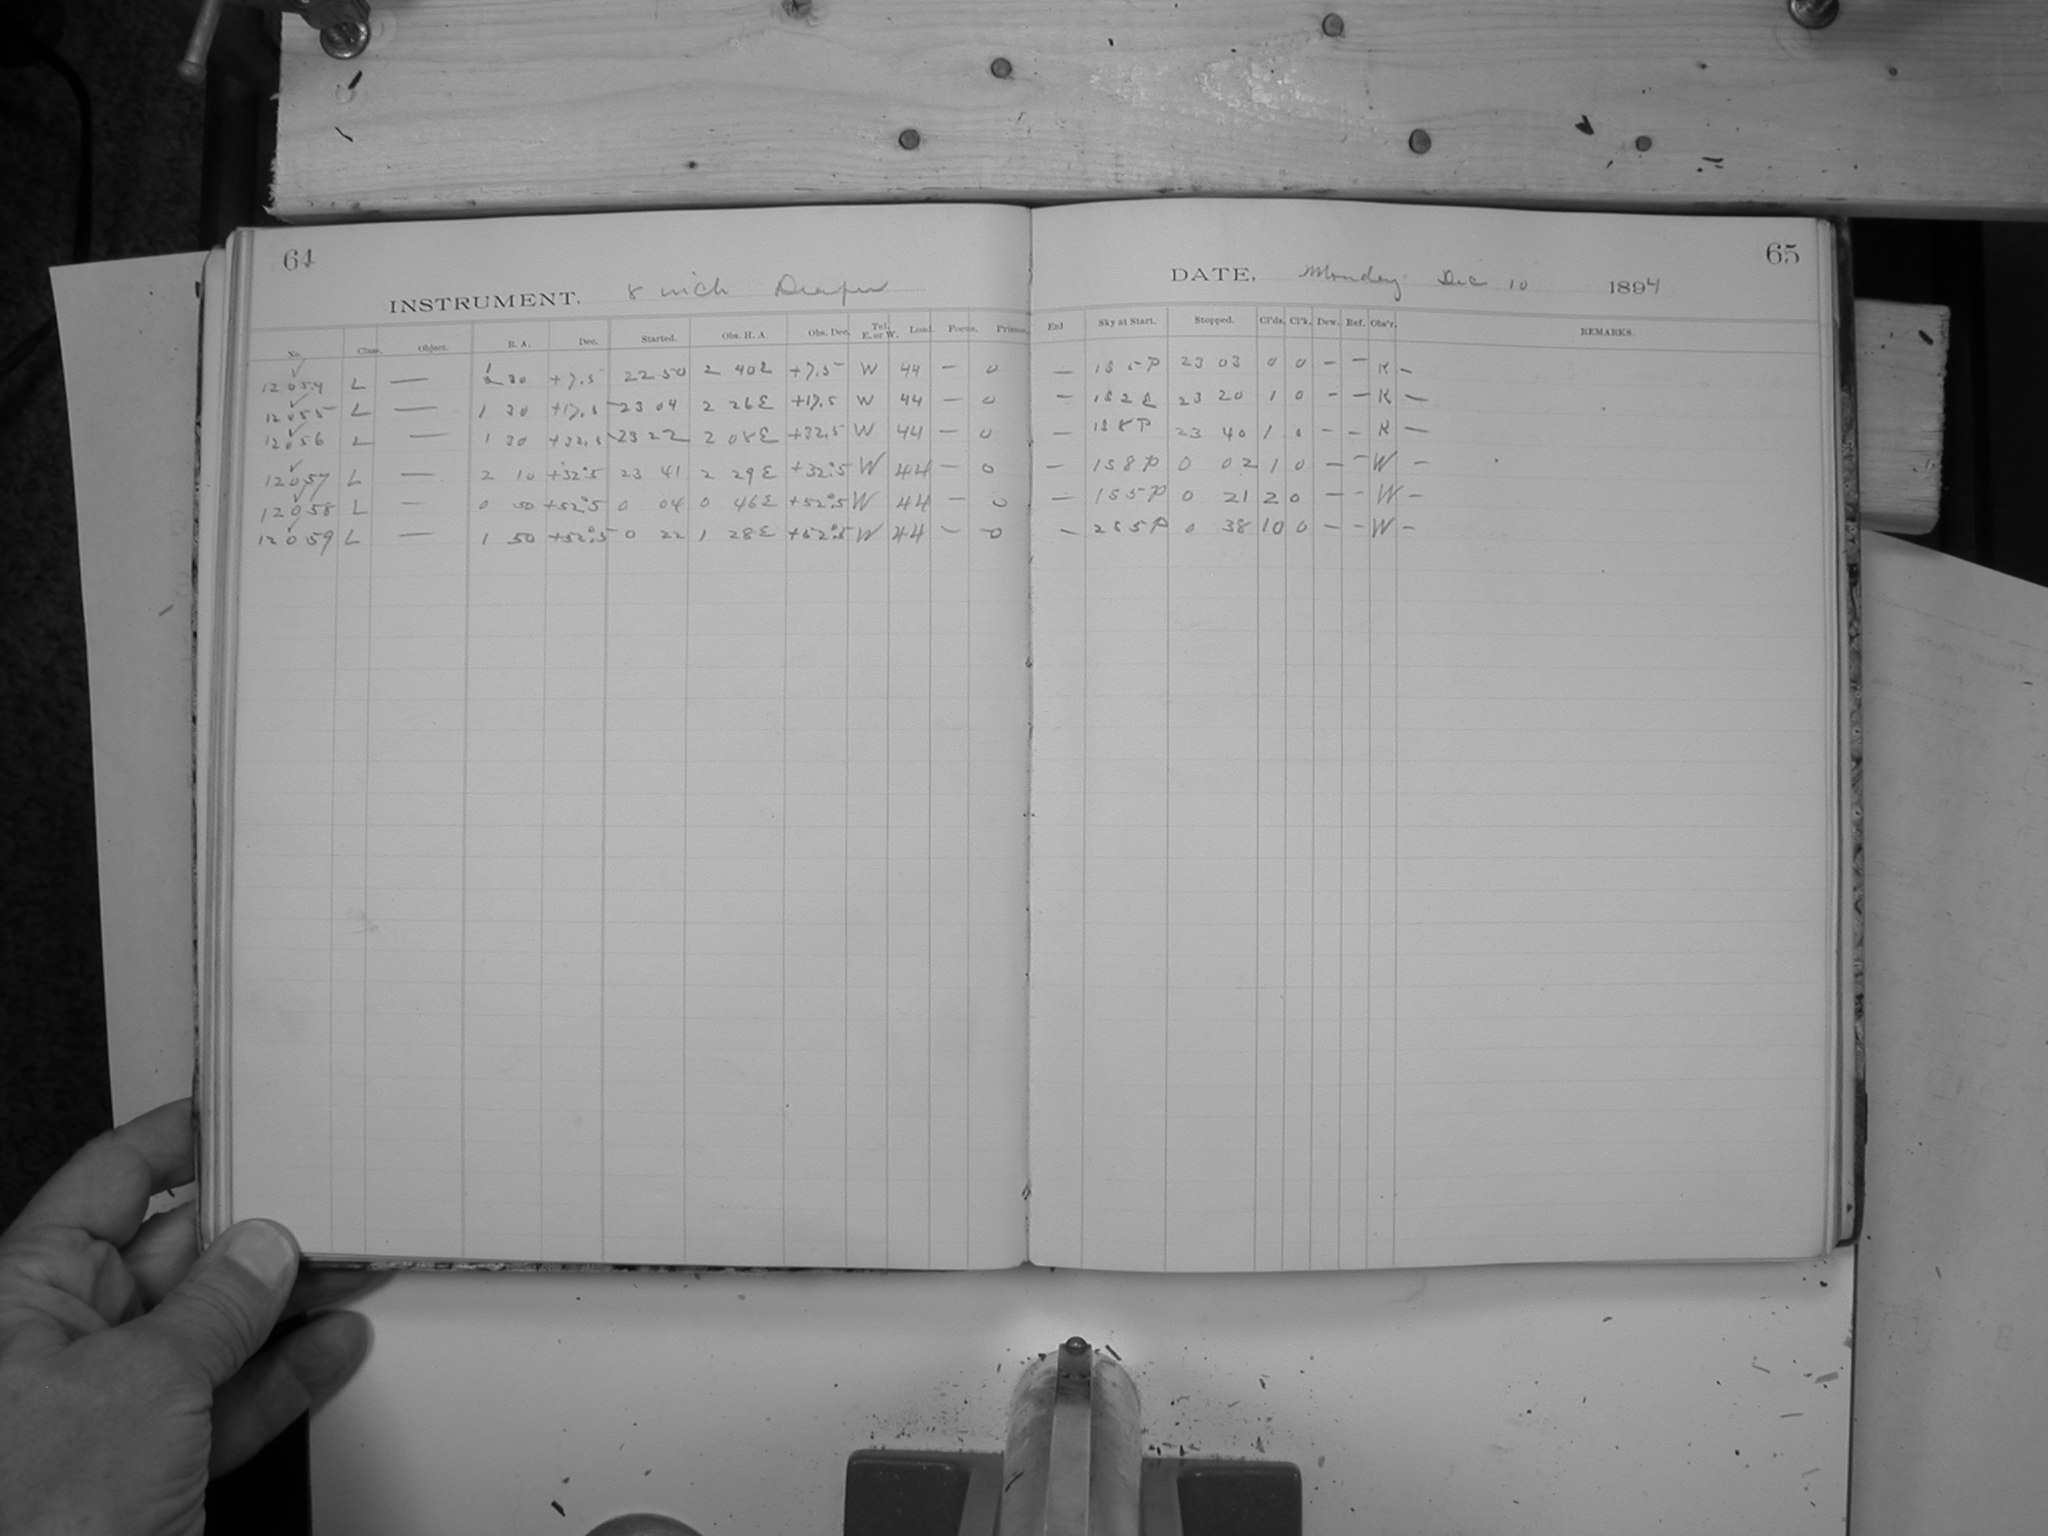 64
INSTRUMENT, 8 inch Draper
No. Class. Object. R. A. Dec. Started. Obs. H. A. Obs. Dec. Tel. E. or W. Load. Focus. Prisms.
12054 L — 1 30 +7.5 22 50 2 40E +7.5 W 44 — 0
12055 L — 1 30 +17.5 23 04 2 26E +17.5 W 44 — 0
12056 L — 1 30 +32.5 23 22 2 08E +32.5 W 44 — 0
12057 L — 2 10 +32°.5 23 41 2 29E +32°.5 W 44 — 0
12058 L — 0 50 +52°.5 0 04 0 46E +52°.5 W 44 — 0
12059 L — 1 50 +52°.5 0 22 1 28E +52°.5 W 44 — 0
65
DATE, Monday Dec 10 1894
Enl Sky at Start. Stopped. Cl'ds. Cl'k. Dew. Ref. Obs'r. REMARKS.
— 23 03 0 0 — — K —
— 23 20 1 0 — — K —
— 23 40 1 0 — — K —
— 158P 0 02 1 0 — — W —
— 155P 0 21 2 0 — — W —
— 255P 0 38 10 0 — — W —